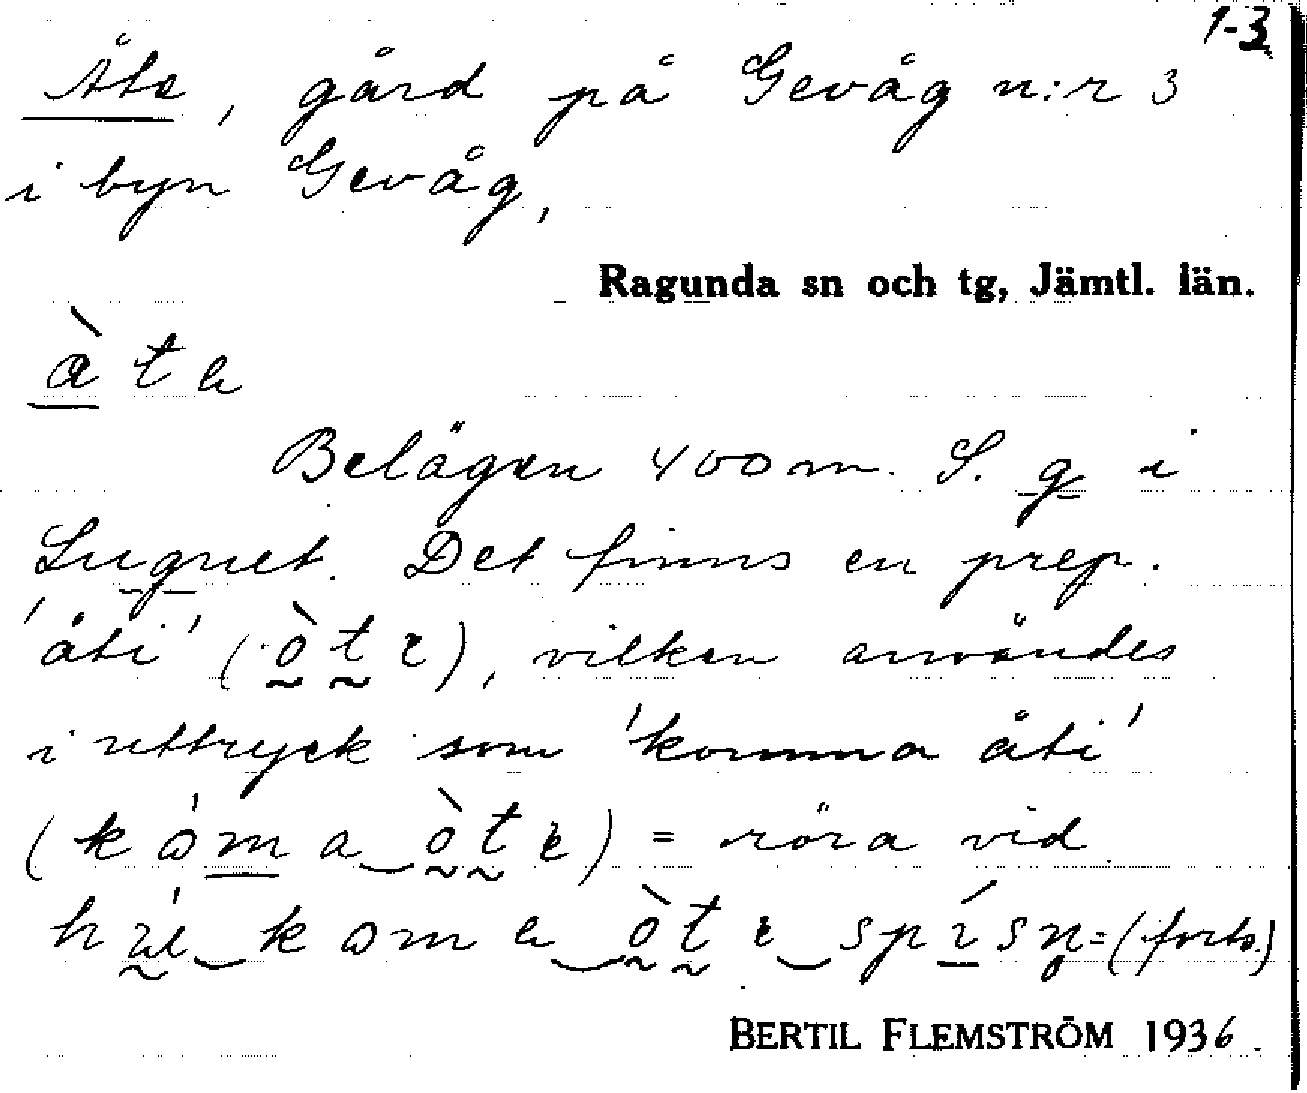 1-3
Åte, gård på Gevåg n:r 3
i byn Gevåg,
Ragunda sn och tg, Jämtl. län.
à t e
Belägen 400 m. S. g i
Lugnet. Det finns en prep.
'åti' (ò t ɩ), vilken användes
i uttryck som 'komma åti'
(k ɷ́ m a ò t ɩ) = röra vid
k ɷ m e ò t ɩ s p í s n̥ = (forts.)
BERTIL FLEMSTRÖM 1936